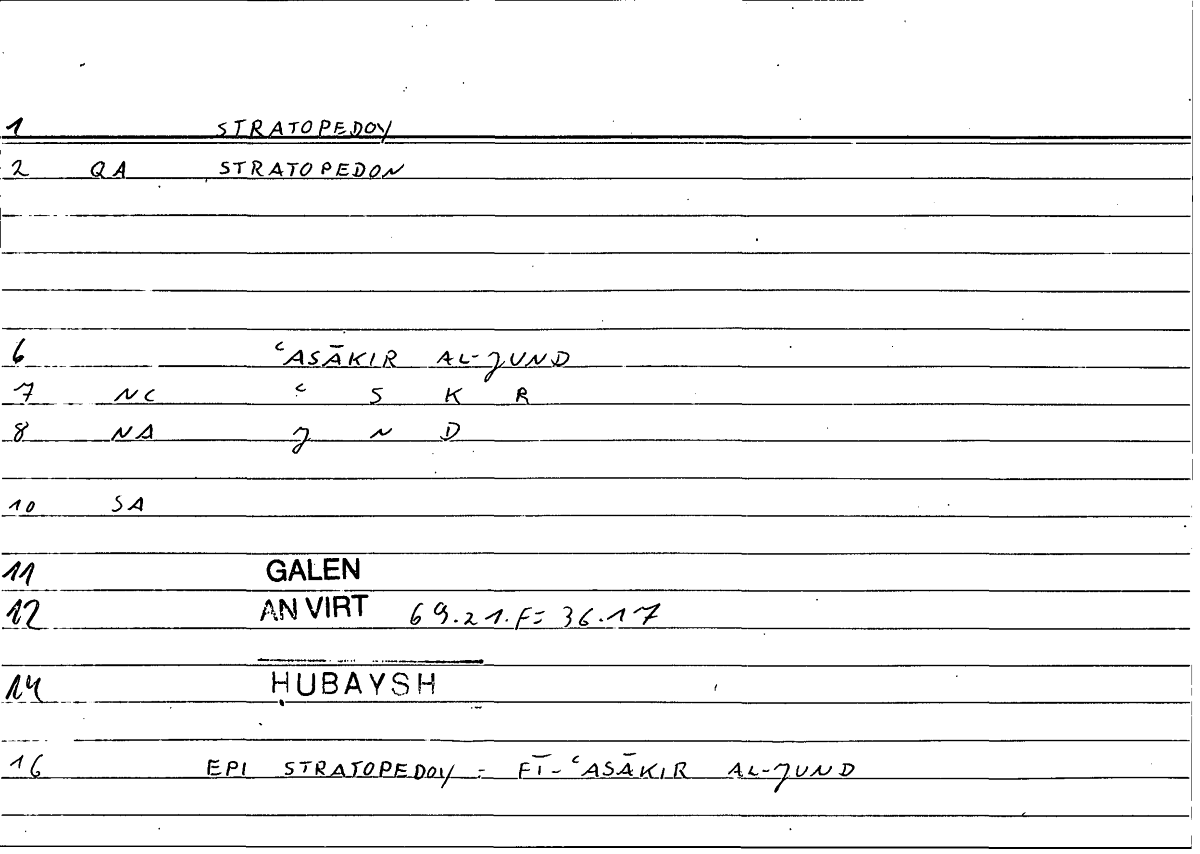 1 STRATOPEDOY
2 QA STRATOPEDON
6 ʿASĀKIR AL-JUND
7 NC ʿ S K R
8 NA J N D
10 SA
11 GALEN
12 AN VIRT 69.21.F= 36.17
14 ḤUBAYSH
16 EPI STRATOPEDOY = FĪ-ʿASĀKIR AL-JUND